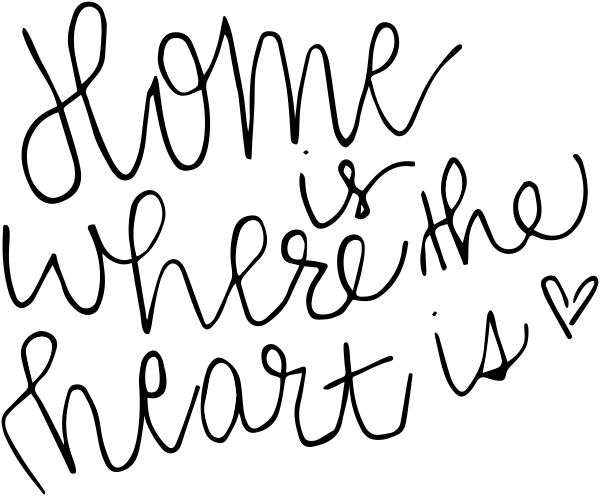 Home
is
where the
heart is